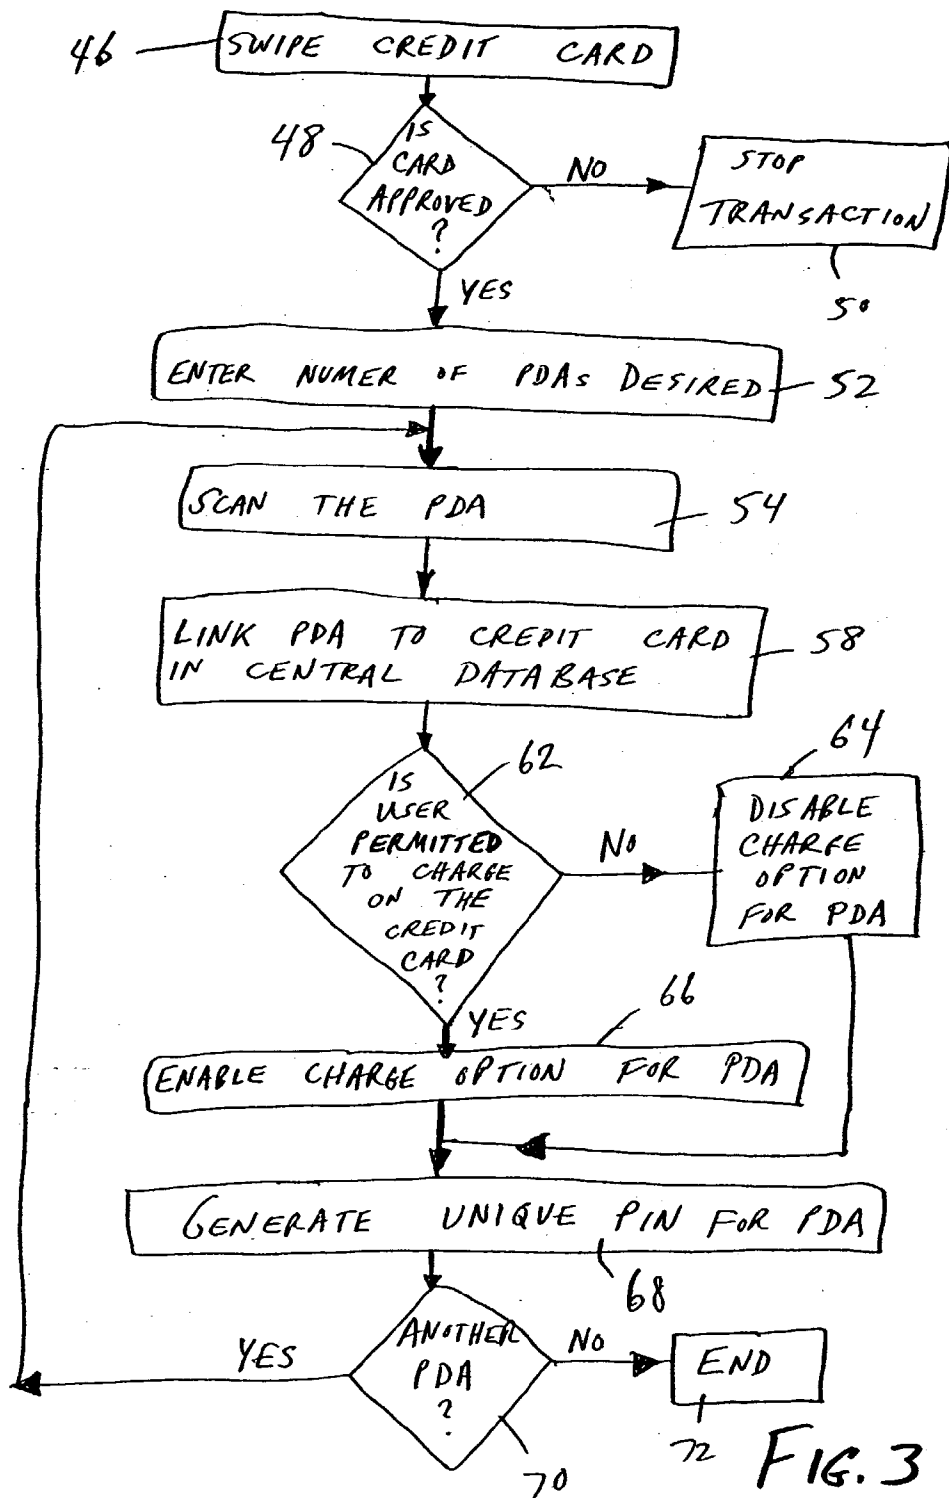 46
SWIPE CREDIT CARD
48
IS
CARD
APPROVED
?
NO
STOP
TRANSACTION
50
YES
ENTER NUMER OF PDAs DESIRED
52
SCAN THE PDA
54
LINK PDA TO CREDIT CARD
IN CENTRAL DATABASE
58
62
IS
USER
PERMITTED
TO CHARGE
ON THE
CREDIT
CARD
?
NO
64
DISABLE
CHARGE
OPTION
FOR PDA
YES
66
ENABLE CHARGE OPTION FOR PDA
GENERATE UNIQUE PIN FOR PDA
68
ANOTHER
PDA
?
YES
NO
END
70
72
FIG. 3